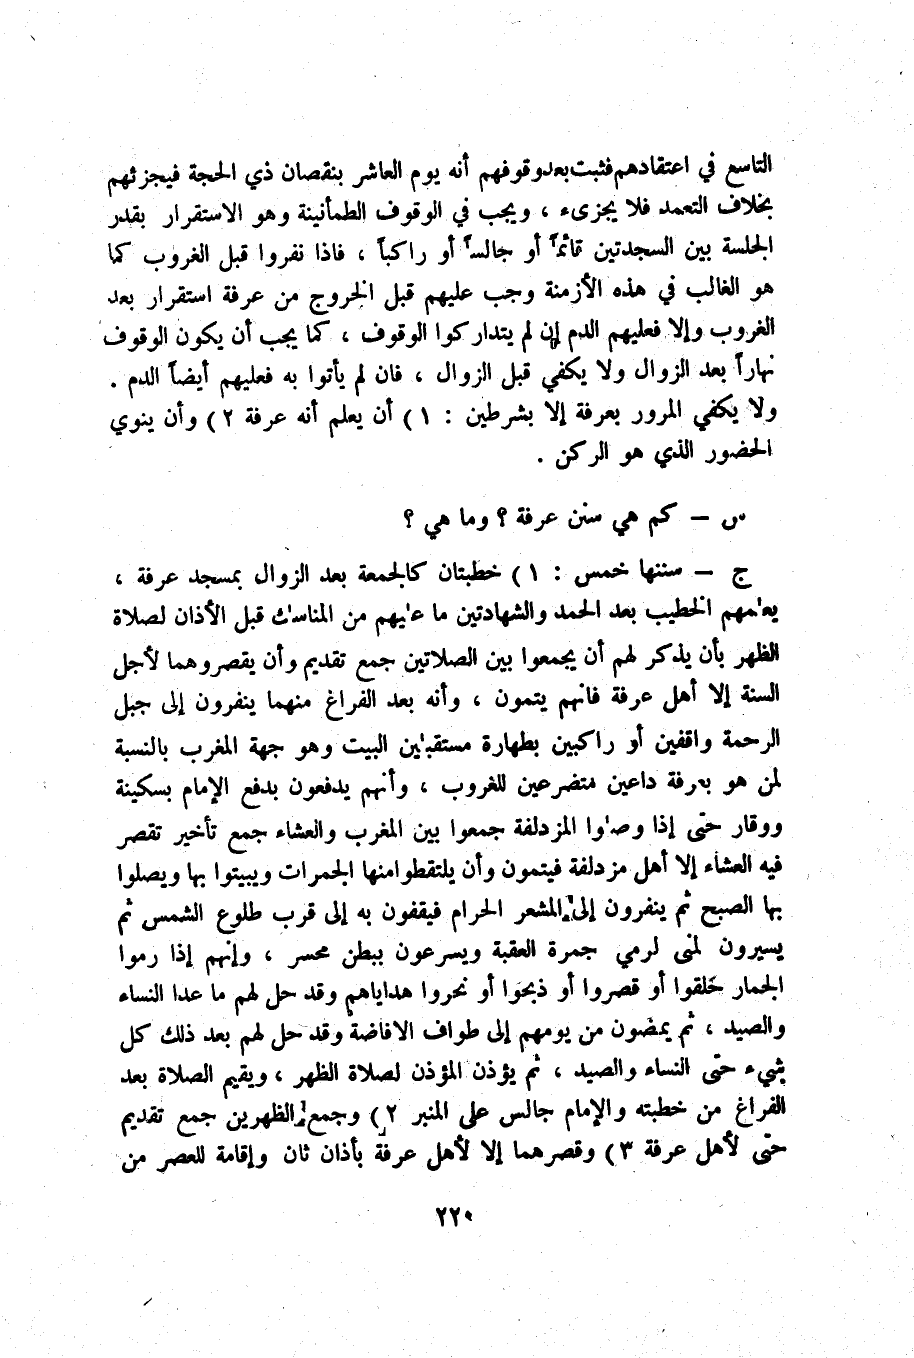 التاسع في اعتقادهم فثبت بعد وقوفهم أنه يوم العاشر بنقصان ذي الحجة فيجزئهم
بخلاف التعمد فلا يجزىء ، ويجب في الوقوف الطمأنينة وهو الاستقرار بقدر
الجلسة بين السجدتين قائماً أو جالساً أو راكباً ، فاذا نفروا قبل الغروب كما
هو الغالب في هذه الأزمنة وجب عليهم قبل الخروج من عرفة استقرار بعد
الغروب وإلا فعليهم الدم إن لم يتداركوا الوقوف ، كما يجب أن يكون الوقوف
نهاراً بعد الزوال ولا يكفي قبل الزوال ، فان لم يأتوا به فعليهم أيضاً الدم .
ولا يكفي المرور بعرفة إلا بشرطين : ١) أن يعلم أنه عرفة ٢) وأن ينوي
الحضور الذي هو الركن .
س – كم هي سنن عرفة ؟ وما هي ؟
ج – سننها خمس : ١) خطبتان كالجمعة بعد الزوال بمسجد عرفة ،
يعلمهم الخطيب بعد الحمد والشهادتين ما عليهم من المناسك قبل الأذان لصلاة
الظهر بأن يذكر لهم أن يجمعوا بين الصلاتين جمع تقديم وأن يقصروهما لأجل
السنة إلا أهل عرفة فانهم يتمون ، وأنه بعد الفراغ منهما ينفرون إلى جبل
الرحمة واقفين أو راكبين بطهارة مستقبلين البيت وهو جهة المغرب بالنسبة
لمن هو بعرفة داعين متضرعين للغروب ، وأنهم يدفعون بدفع الإمام بسكينة
ووقار حتى إذا وصلوا المزدلفة جمعوا بين المغرب والعشاء جمع تأخير تقصر
فيه العشاء إلا أهل مزدلفة فيتمون وأن يلتقطوا منها الجمرات ويبيتوا بها ويصلوا
بها الصبح ثم ينفرون إلى المشعر الحرام فيقفون به إلى قرب طلوع الشمس ثم
يسيرون لمنى لرمي جمرة العقبة ويسرعون ببطن محسر ، وإنهم إذا رموا
الجمار حلقوا أو قصروا أو ذبحوا أو نحروا هداياهم وقد حل لهم ما عدا النساء
والصيد ، ثم يمضون من يومهم إلى طواف الافاضة وقد حل لهم بعد ذلك كل
شيء حتى النساء والصيد ، ثم يؤذن المؤذن لصلاة الظهر ، ويقيم الصلاة بعد
الفراغ من خطبته والإمام جالس على المنبر ٢) وجمع الظهرين جمع تقديم
حتى لأهل عرفة ٣) وقصرهما إلا لأهل عرفة بأذان ثان وإقامة للعصر من
٢٢٠